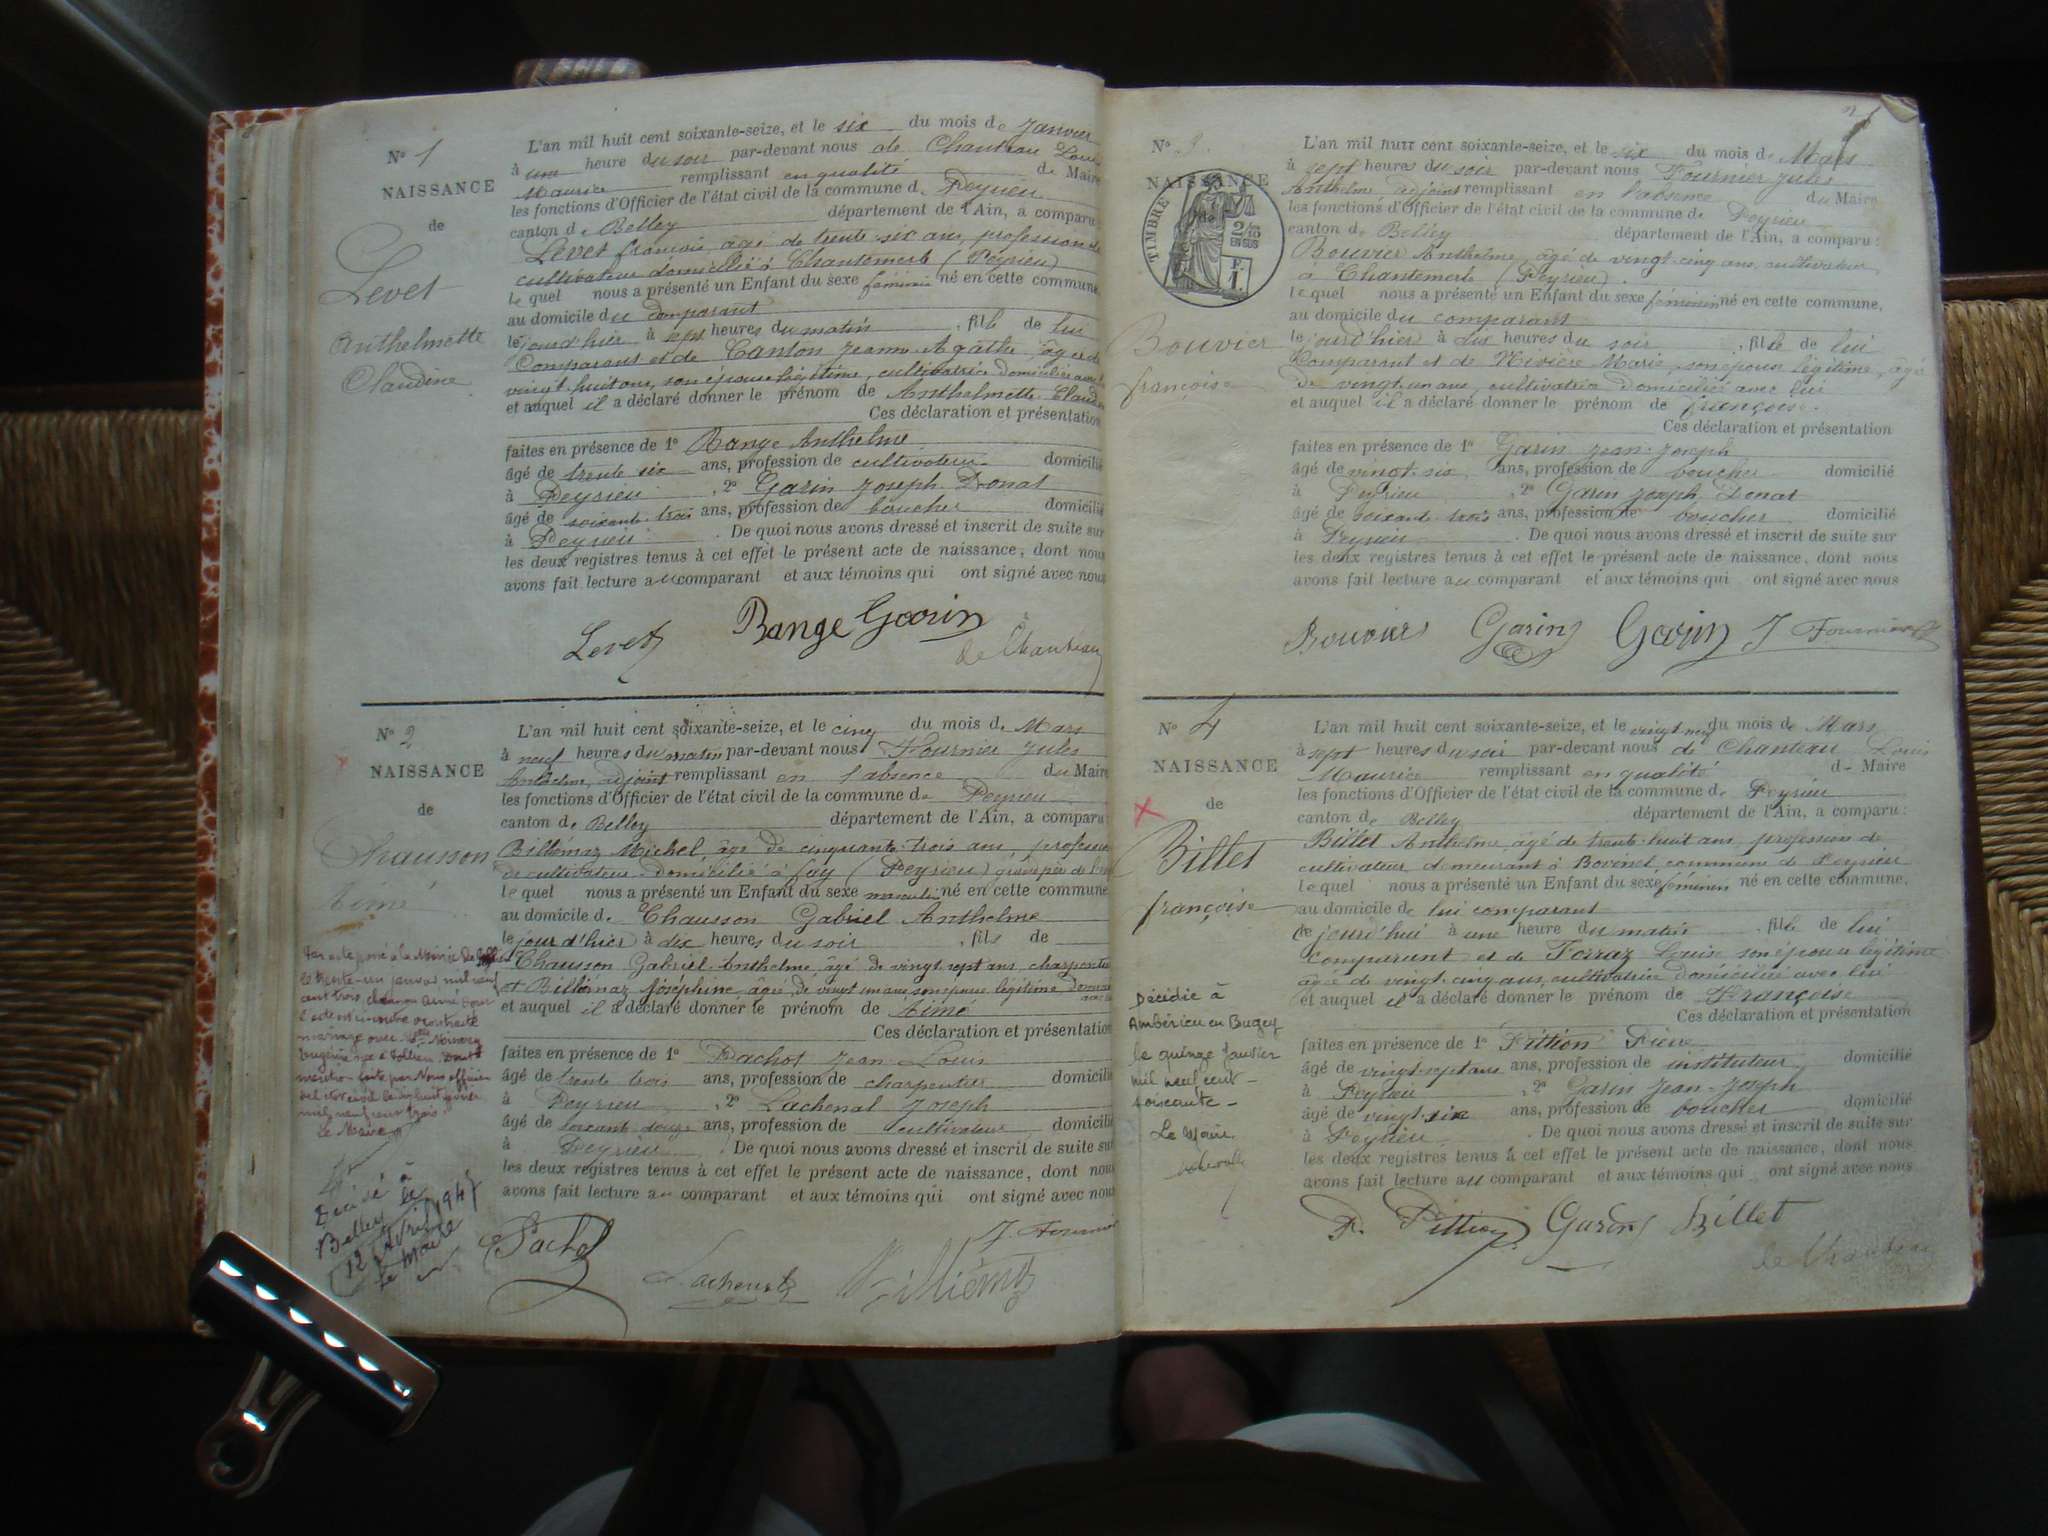 N° 1
NAISSANCE
de
Levet
Anthelmette
Claudine
L'an mil huit cent soixante-seize, et le six du mois de Janvier
à une heure du soir par-devant nous de Chanteau Louis
Maurice remplissant en qualité de Maire
les fonctions d'Officier de l'état civil de la commune de Peyrieu
canton de Belley département de l'Ain, a comparu
Levet françois âgé de trente six ans, profession de
cultivateur domicilié à Chantemerle (Peyrieu)
le quel nous a présenté un Enfant du sexe féminin né en cette commune,
au domicile du comparant
le jourd'hier à sept heures du matin , fille de lui
Comparant et de Canton Jeanne Agathe âgée de
vingt huit ans, son épouse légitime, cultivatrice domiciliée avec lui
et auquel il a déclaré donner le prénom de Anthelmette Claudine
Ces déclaration et présentation
faites en présence de 1° Range Anthelme
âgé de trente six ans, profession de cultivateur domicilié
à Peyrieu , 2° Garin Joseph Donat
âgé de soixante trois ans, profession de boucher domicilié
à Peyrieu . De quoi nous avons dressé et inscrit de suite sur
les deux registres tenus à cet effet le présent acte de naissance, dont nous
avons fait lecture au comparant et aux témoins qui ont signé avec nous
Levet Range Garin
de Chanteau
N° 2
NAISSANCE
de
Chausson
Aimé
L'an mil huit cent soixante-seize, et le cinq du mois de Mars
à neuf heures du matin par-devant nous Fournier Jules
Anthelme, adjoint remplissant en l'absence du Maire
les fonctions d'Officier de l'état civil de la commune de Peyrieu
canton de Belley département de l'Ain, a comparu
Billiémaz Michel âgé de cinquante trois ans, profession
de cultivateur domicilié à fay (Peyrieu) grand père de l'enfant
le quel nous a présenté un Enfant du sexe masculin né en cette commune
au domicile de Chausson Gabriel Anthelme
le jour d'hier à dix heures du soir , fils de
Chausson Gabriel Anthelme, âgé de vingt sept ans, charpentier
et Billiémaz Joséphine âgée de vingt un ans son épouse légitime
et auquel il a déclaré donner le prénom de Aimé
Ces déclaration et présentation
faites en présence de 1° Pachot Jean Louis
âgé de trente trois ans, profession de charpentier domicilié
à Peyrieu , 2° Lachenal Joseph
âgé de soixante douze ans, profession de cultivateur domicilié
à Peyrieu . De quoi nous avons dressé et inscrit de suite sur
les deux registres tenus à cet effet le présent acte de naissance, dont nous
avons fait lecture au comparant et aux témoins qui ont signé avec nous
Par acte passé à la Mairie de
le trente-un janvier mil neuf
cent trois, Chausson Aimé dont
l'acte est ci-contre a contracté
mariage avec
Eugénie née à Dont
mention faite par Nous officier
de l'état civil le février
mil neuf cent trois.
Le Maire
Décédé à
Belley le
12 Avril 1947
Le Maire
Pachot
J. Fournier
Lachenal Billiémaz
N° 3
NAISSANCE
de
TIMBRE
2/10
EN SUS
F.
1.
Bouvier
françoise
L'an mil huit cent soixante-seize, et le six du mois de Mars
à sept heures du soir par-devant nous Fournier Jules
Anthelme adjoint remplissant en l'absence du Maire
les fonctions d'Officier de l'état civil de la commune de Peyrieu
canton de Belley département de l'Ain, a comparu :
Bouvier Anthelme, âgé de vingt cinq ans, cultivateur
à Chantemerle (Peyrieu).
le quel nous a présenté un Enfant du sexe féminin né en cette commune,
au domicile du comparant
le jourd'hier à dix heures du soir , fille de lui
Comparant et de Rivière Marie son épouse légitime, âgée
de vingt un ans, cultivatrice domiciliée avec lui
et auquel il a déclaré donner le prénom de françoise.
Ces déclaration et présentation
faites en présence de 1° Garin Jean-Joseph
âgé de vingt-six ans, profession de boucher domicilié
à Peyrieu , 2° Garin Joseph Donat
âgé de soixante trois ans, profession de boucher domicilié
à Peyrieu . De quoi nous avons dressé et inscrit de suite sur
les deux registres tenus à cet effet le présent acte de naissance, dont nous
avons fait lecture au comparant et aux témoins qui ont signé avec nous
Bouvier Garin Garin J Fournier
N° 4
NAISSANCE
de
Billet
françoise
L'an mil huit cent soixante-seize, et le vingt-neuf du mois de Mars
à sept heures du soir par-devant nous de Chanteau Louis
Maurice remplissant en qualité de Maire
les fonctions d'Officier de l'état civil de la commune de Peyrieu
canton de Belley département de l'Ain, a comparu :
Billet Anthelme, âgé de trente huit ans, profession de
cultivateur demeurant à Bovinel, commune de Peyrieu
le quel nous a présenté un Enfant du sexe féminin né en cette commune,
au domicile de lui comparant
le jourd'hui à une heure du matin , fille de lui
Comparant et de Forraz Louise son épouse légitime
âgée de vingt-cinq ans, cultivatrice domiciliée avec lui
et auquel il a déclaré donner le prénom de Françoise
Ces déclaration et présentation
faites en présence de 1° Pittion
âgé de vingt-sept ans, profession de instituteur domicilié
à Peyrieu , 2° Garin Jean-Joseph
âgé de vingt six ans, profession de boucher domicilié
à Peyrieu . De quoi nous avons dressé et inscrit de suite sur
les deux registres tenus à cet effet le présent acte de naissance, dont nous
avons fait lecture au comparant et aux témoins qui ont signé avec nous
Décédée à
Ambérieu en Bugey
le quinze Janvier
mil neuf cent
soixante
Le Maire
P. Pittion Garin Billet
de Chanteau